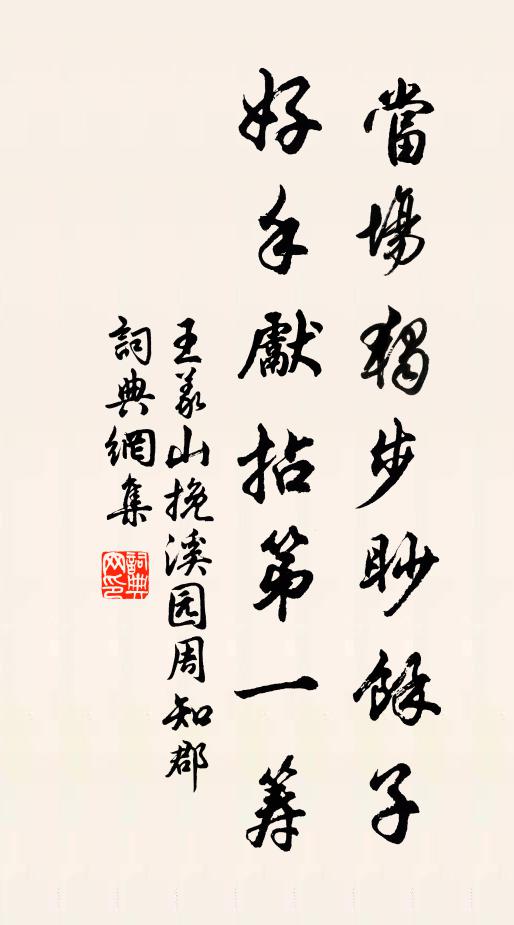 當場獨步眇餘子
好手獻拈第一筹
王义山挽溪园周知郡
詞典網集
詞典網印